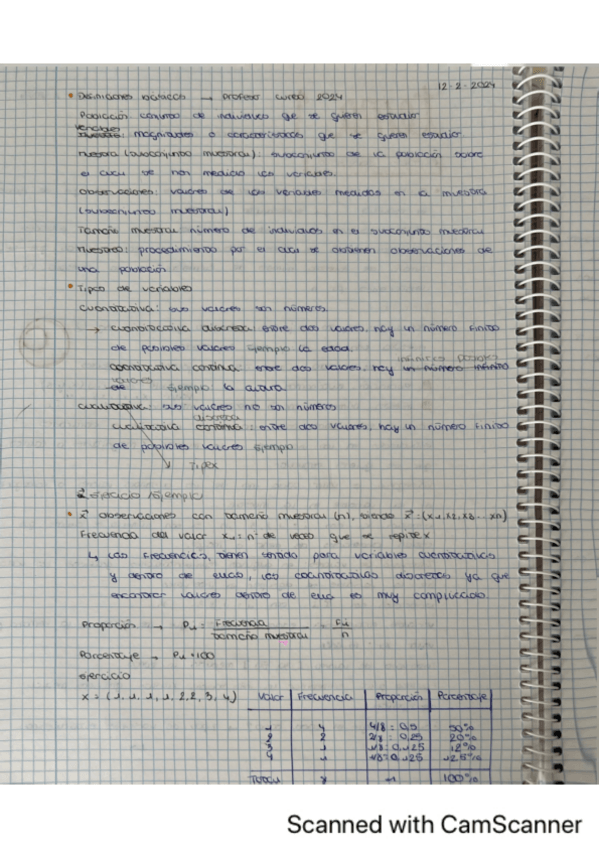 12-2-2024
• Definiciones básicas → profesor curso 2024
Población conjunto de individuos que se quieren estudiar
variables
muestra: magnitudes o características que se quieren estudiar
muestra (subconjunto muestral): subconjunto de la población sobre
el cual se han medido las variables.
observaciones: valores de las variables medidas en la muestra
(subconjunto muestral)
Tamaño muestral número de individuos en el subconjunto muestral
muestreo: procedimiento por el cual se obtienen observaciones de
una población
• Tipos de variables
cuantitativa: sus valores son números.
→ cuantitativa discreta entre dos valores, hay un número finito
de posibles valores ejemplo la edad.
infinitos posibles
cuantitativa continua entre dos valores, hay un número infinito
valores
de ejemplo la altura.
cualitativa: sus valores no son números
discreta
cualitativa continua: entre dos valores, hay un número finito
de posibles valores ejemplo
Tipex
ejercicio /ejemplo
• x⃗ observaciones con tamaño muestral (n), siendo x⃗ = (x1, x2, x3 ... xn)
Frecuencia del valor x: nº de veces que se repite x
↳ las frecuencias, tienen sentido para variables cuantitativas
y dentro de ellas, las cuantitativas discretas ya que
encontrar valores dentro de ella es muy complicado
Proporción → Pu = Frecuencia / tamaño muestral = Fu / n
Porcentaje → Pu · 100
ejercicio
x = (1, 1, 1, 1, 2, 2, 3, 4) Valor Frecuencia Proporción Porcentaje
1 4 4/8 = 0,5 50%
2 2 2/8 = 0,25 20%
3 1 1/8 = 0,125 12%
4 1 1/8 = 0,125 12,5%
TOTAL 1 100%
Scanned with CamScanner